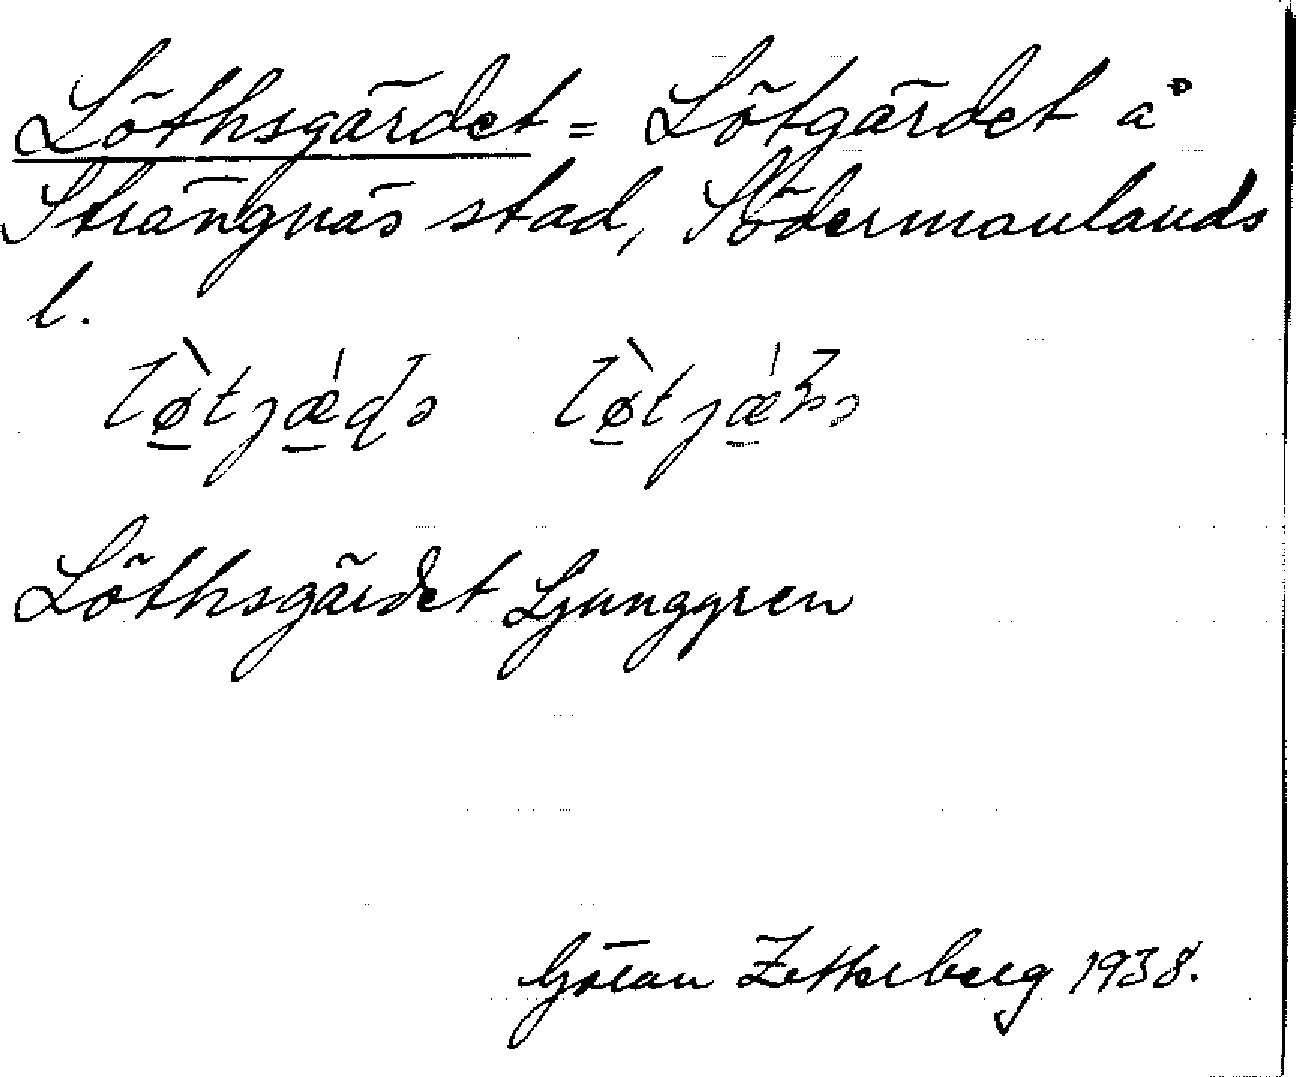 Löthsgärdet = Lötgärdet å
Strängnäs stad, Södermanlands
l.
Löthsgärdet Ljunggren
Göran Zetterberg 1938.